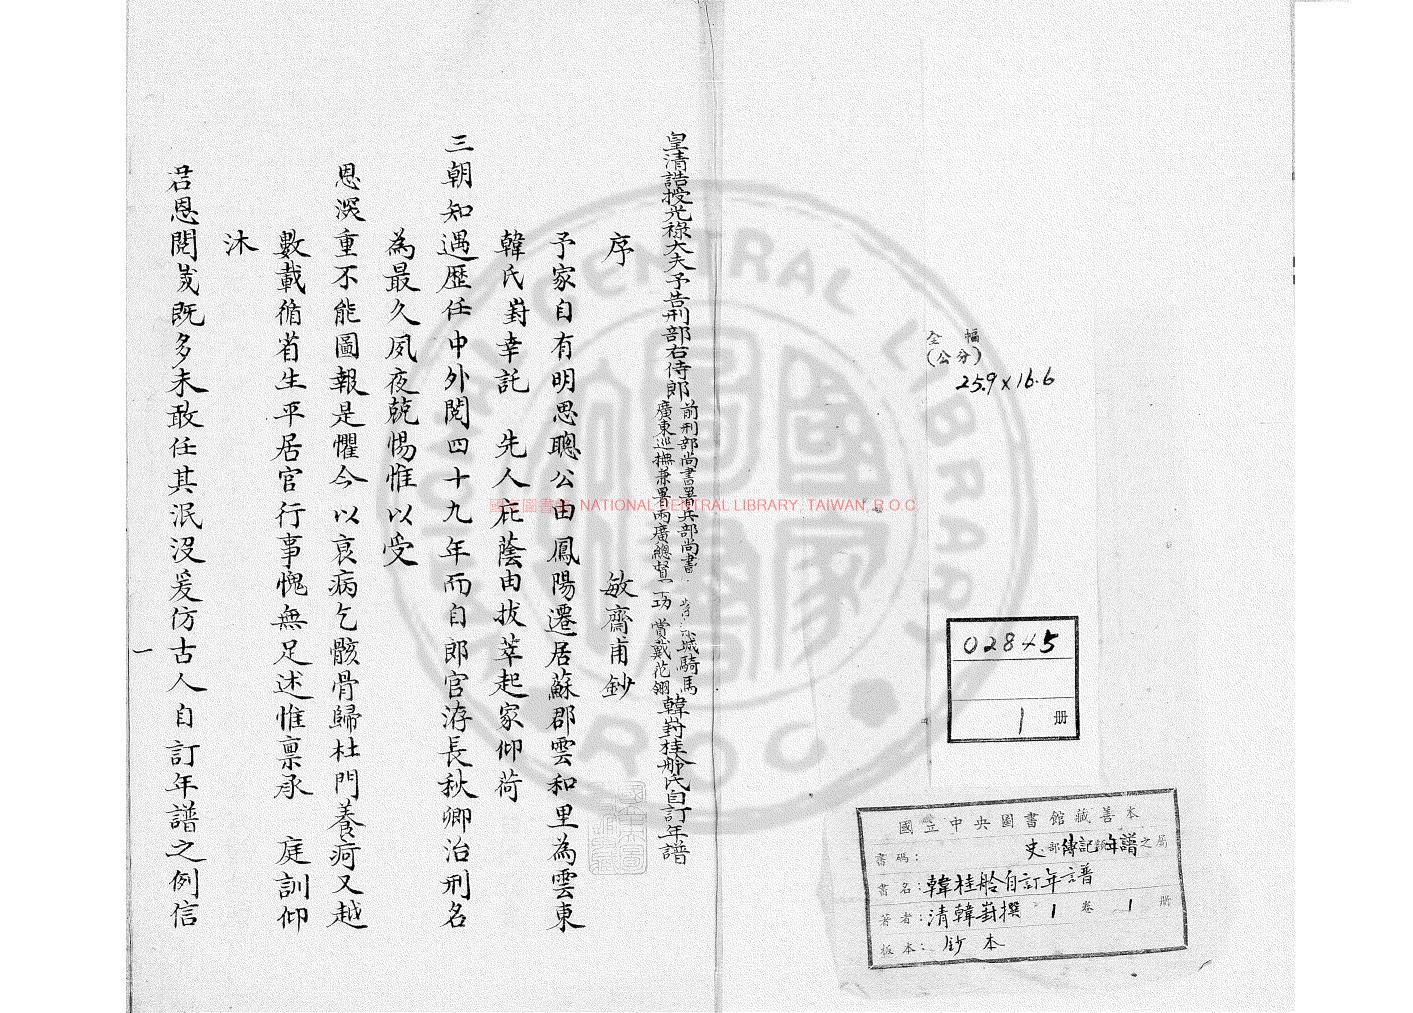 全幅
(公分)
25.9×16.6
02845
1 册
國立中央圖書館藏善本
書碼: 史部傳記類年譜之屬
書名: 韓桂舲自訂年譜
著者: 清韓崶撰 1 卷 1 册
板本: 鈔本
皇清誥授光祿大夫予告刑部右侍郎 前刑部尚書署兵部尚書 紫禁城騎馬 廣東巡撫兼署兩廣總督 賞戴花翎 韓崶桂舲氏自訂年譜
序 敏齋甫鈔
予家自有明思聰公由鳳陽遷居蘇郡雲和里為雲東
韓氏崶幸託 先人庇蔭由拔萃起家仰荷
三朝知遇歷任中外閱四十九年而自郎官洊長秋卿治刑名
為最久夙夜兢惕惟以受
恩深重不能圖報是懼今以衰病乞骸骨歸杜門養疴又越
數載循省生平居官行事愧無足述惟稟承 庭訓仰
沐
君恩閱歲既多未敢任其泯沒爰仿古人自訂年譜之例信
一
國立中央圖書館 NATIONAL CENTRAL LIBRARY, TAIWAN, R.O.C
國家圖書館
NATIONAL CENTRAL LIBRARY R.O.C